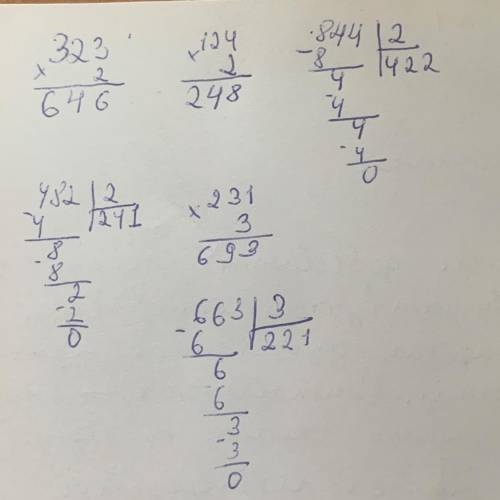 323
× 2
646
124
× 2
248
844 | 2
-8 | 422
4
-4
4
-4
0
482 | 2
-4 | 241
8
-8
2
-2
0
231
× 3
693
663 | 3
-6 | 221
6
6
3
-3
0